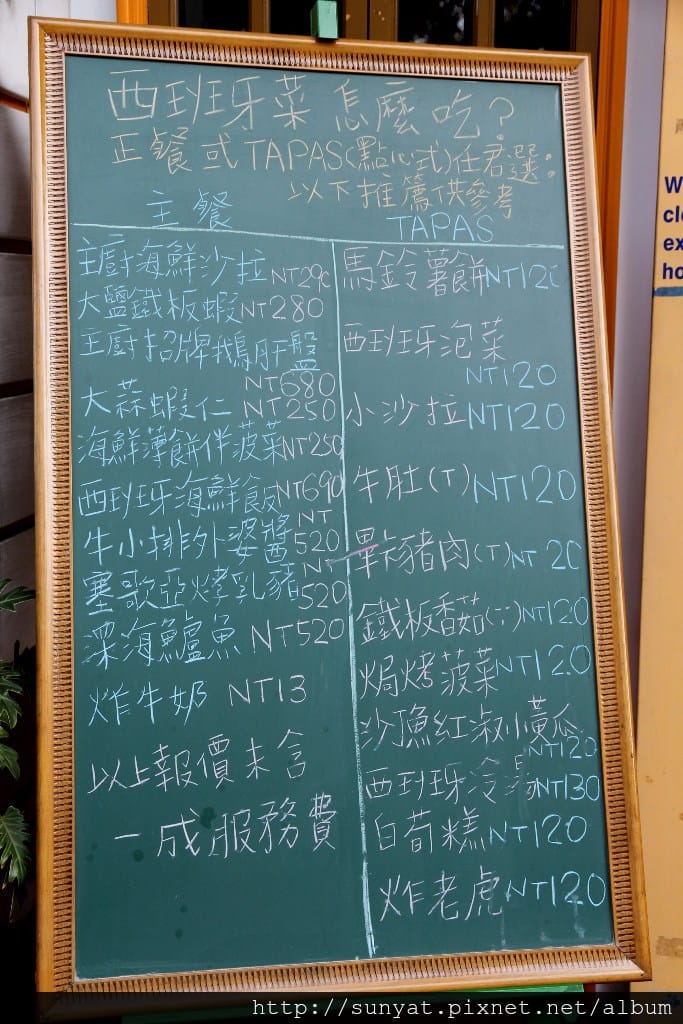 西班牙菜 怎麼吃?
正餐或TAPAS(點心式)任君選:
以下推薦供參考
主餐
主廚海鮮沙拉 NT290
大鹽鐵板蝦 NT280
主廚招牌鵝肝盤
NT680
大蒜蝦仁 NT250
海鮮薄餅伴菠菜NT250
西班牙海鮮飯NT690
牛小排外婆醬 NT520
塞歌亞烤乳豬 NT520
深海鱸魚 NT520
炸牛奶 NT13
以上報價未含
一成服務費
TAPAS
馬鈴薯餅NT120
西班牙泡菜
NT120
小沙拉NT120
牛肚(T)NT120
豬肉(T)NT 20
鐵板香菇(:)NT120
焗烤菠菜NT120
沙魚紅椒小黃瓜
NT120
西班牙冷湯NT130
白荀糕NT120
炸老虎NT120
W
cl
ex
ho
http://sunyat.pixnet.net/album